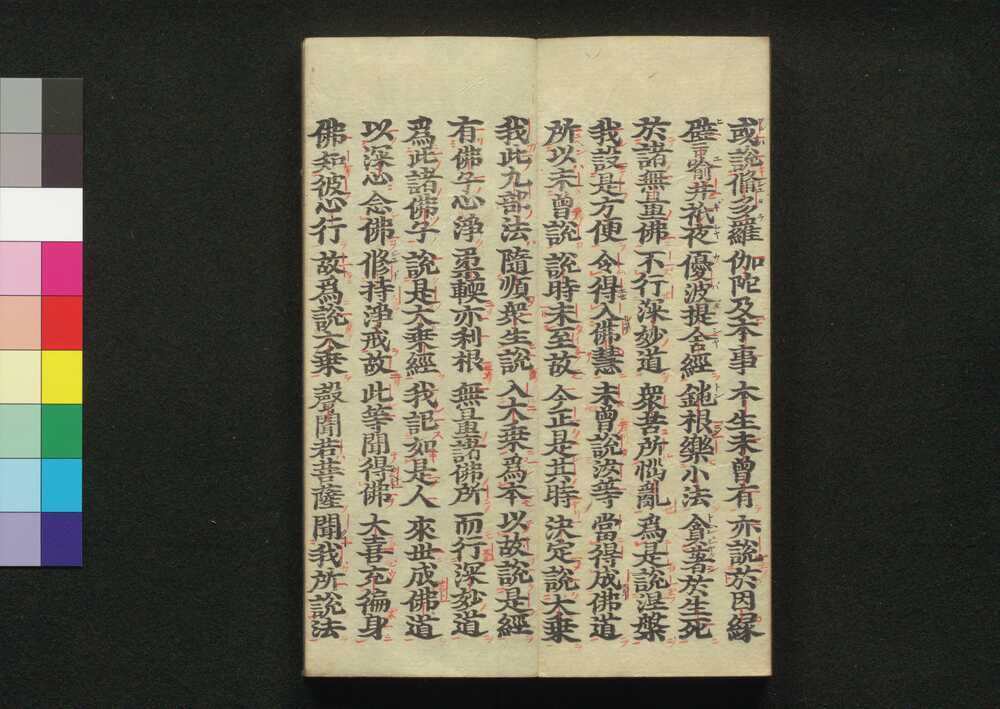 或說脩多羅 伽陀及本事 本生未曾有 亦說於因緣
譬喻并祇夜 優波提舍經 鈍根樂小法 貪著於生死
於諸無量佛 不行深妙道 衆苦所惱亂 爲是說涅槃
我設是方便 令得入佛慧 未曾說汝等 當得成佛道
所以未曾說 說時未至故 今正是其時 決定說大乘
我此九部法 隨順衆生說 入大乘爲本 以故說是經
有佛子心淨 柔軟亦利根 無量諸佛所 而行深妙道
爲此諸佛子 說是大乘經 我記如是人 來世成佛道
以深心念佛 修持淨戒故 此等聞得佛 大喜充徧身
佛知彼心行 故爲說大乘 聲聞若菩薩 聞我所說法